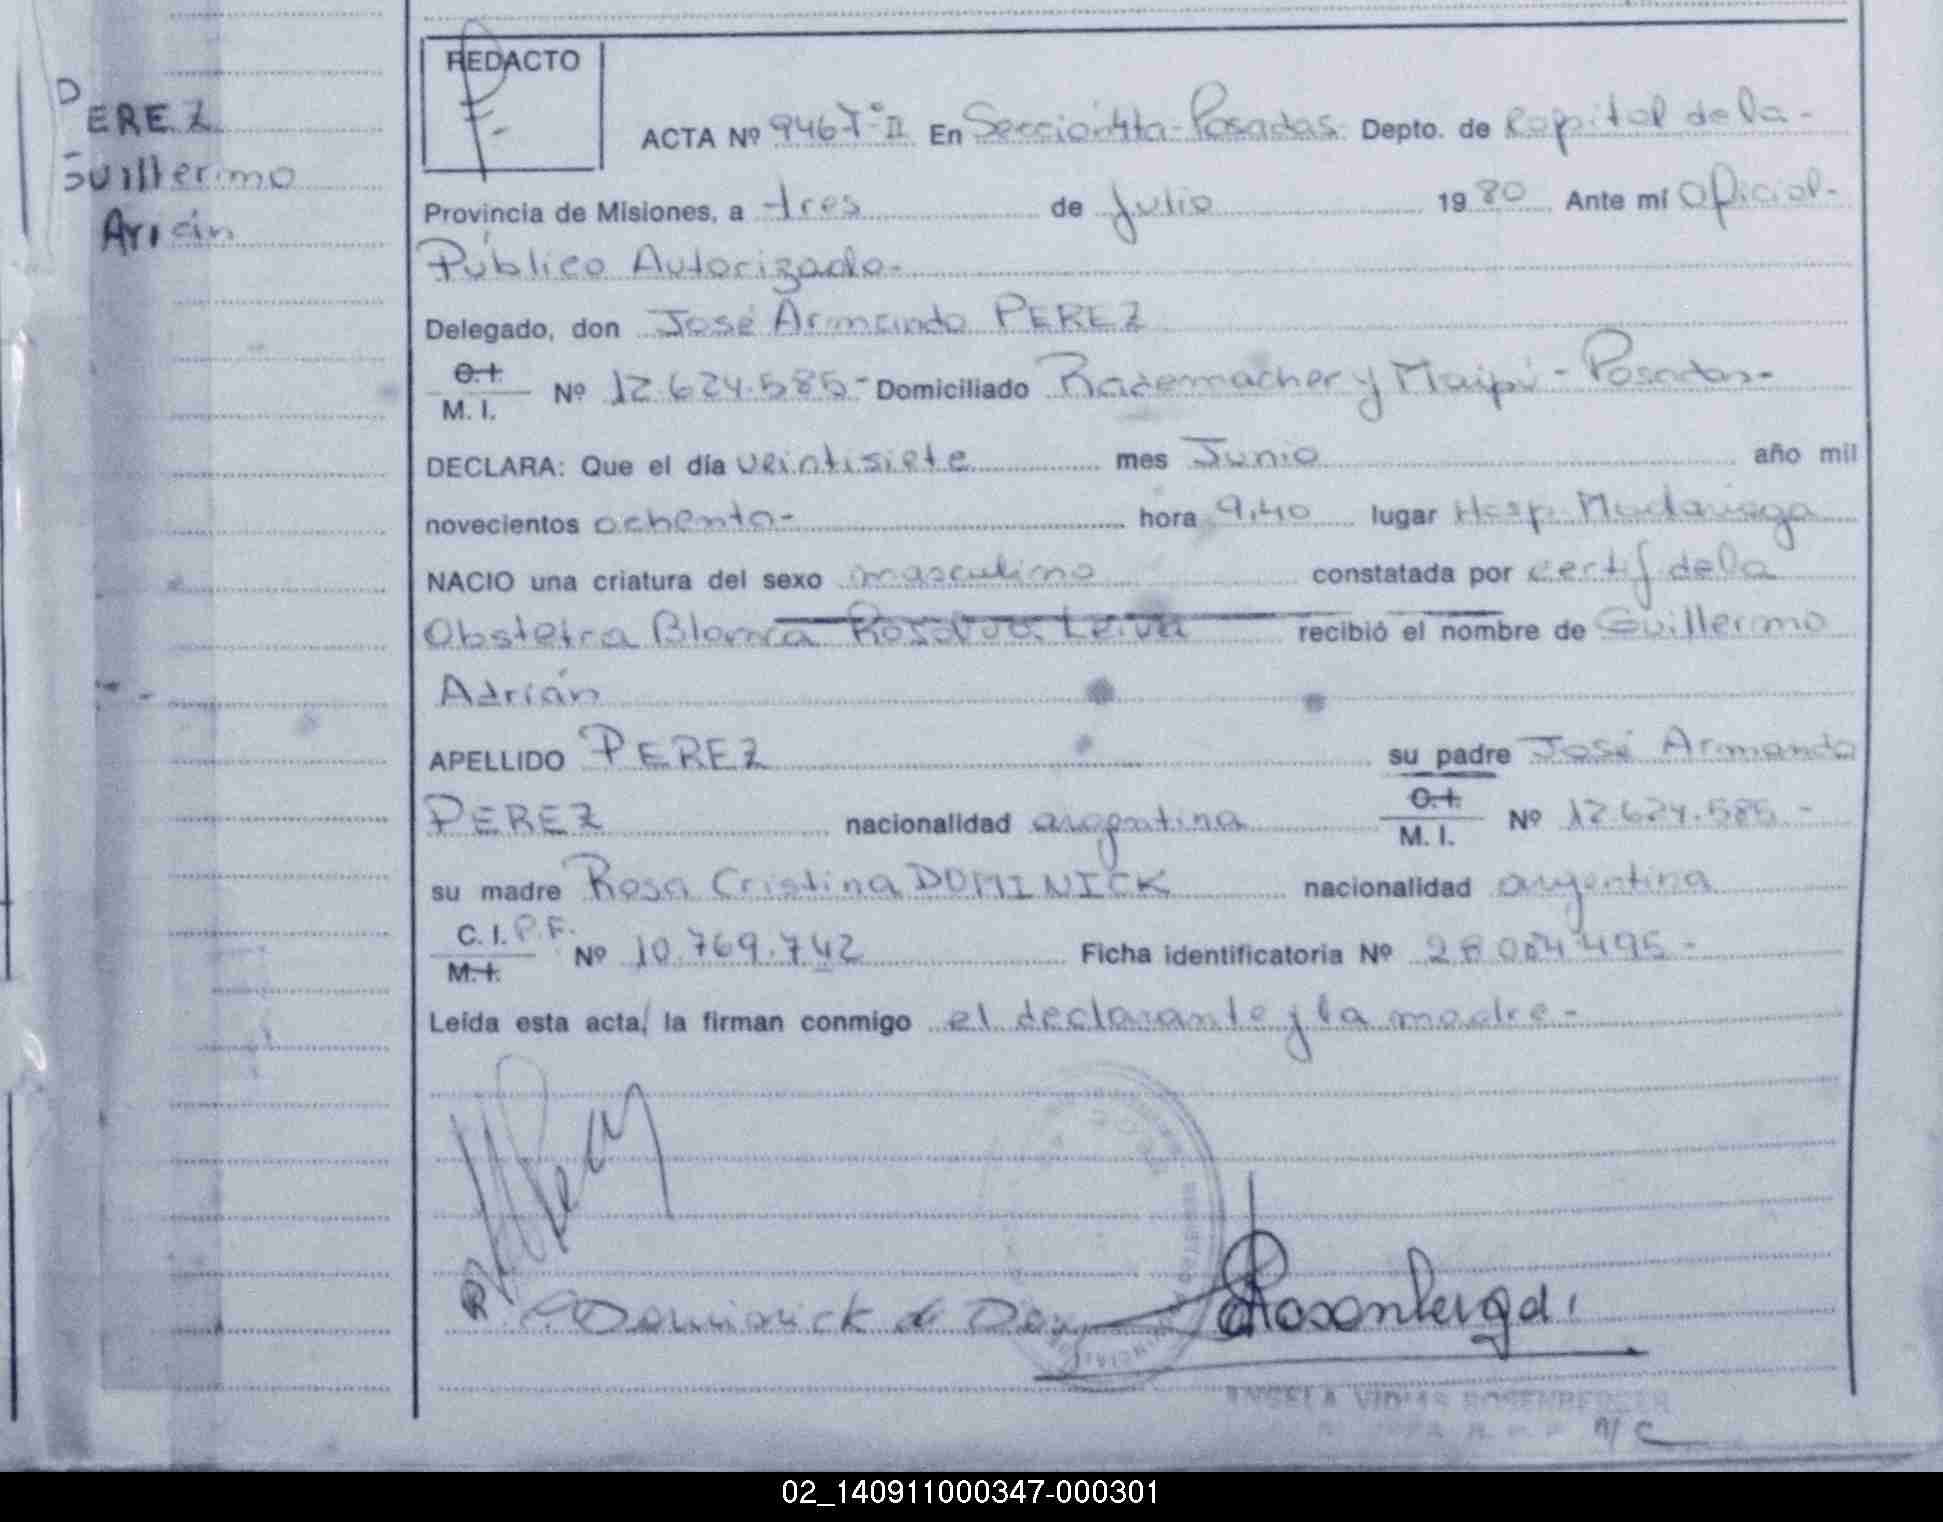 PEREZ
Guillerimo
Arián
REDACTO
ACTA Nº 946 Tº II En Sección 4ta - Posadas Depto. de Capital de la -
Provincia de Misiones, a tres de Julio 1980 Ante mí Oficial -
Público Autorizado -
Delegado, don José Armando PEREZ
C.I.
M. I. Nº 12.624.585 - Domiciliado Rademacher y Maipú - Posadas -
DECLARA: Que el día veintisiete mes Junio año mil
novecientos ochenta - hora 9,40 lugar Hosp. Madariaga
NACIO una criatura del sexo masculino constatada por certif de la
Obstetra Blanca Leiva recibió el nombre de Guillermo
Adrián
APELLIDO PEREZ su padre José Armando
PEREZ nacionalidad argentina C.I. M. I. Nº 12.624.585 -
su madre Rosa Cristina DOMINICK nacionalidad argentina
C. I. P.F.
M.I. Nº 10.769.742 Ficha identificatoria Nº 28 084 495 -
Leída esta acta, la firman conmigo el declarante y la madre -
R. C. Dominick de
Rosenberg
ANGELA ROSENBERGER
A/C
02_140911000347-000301